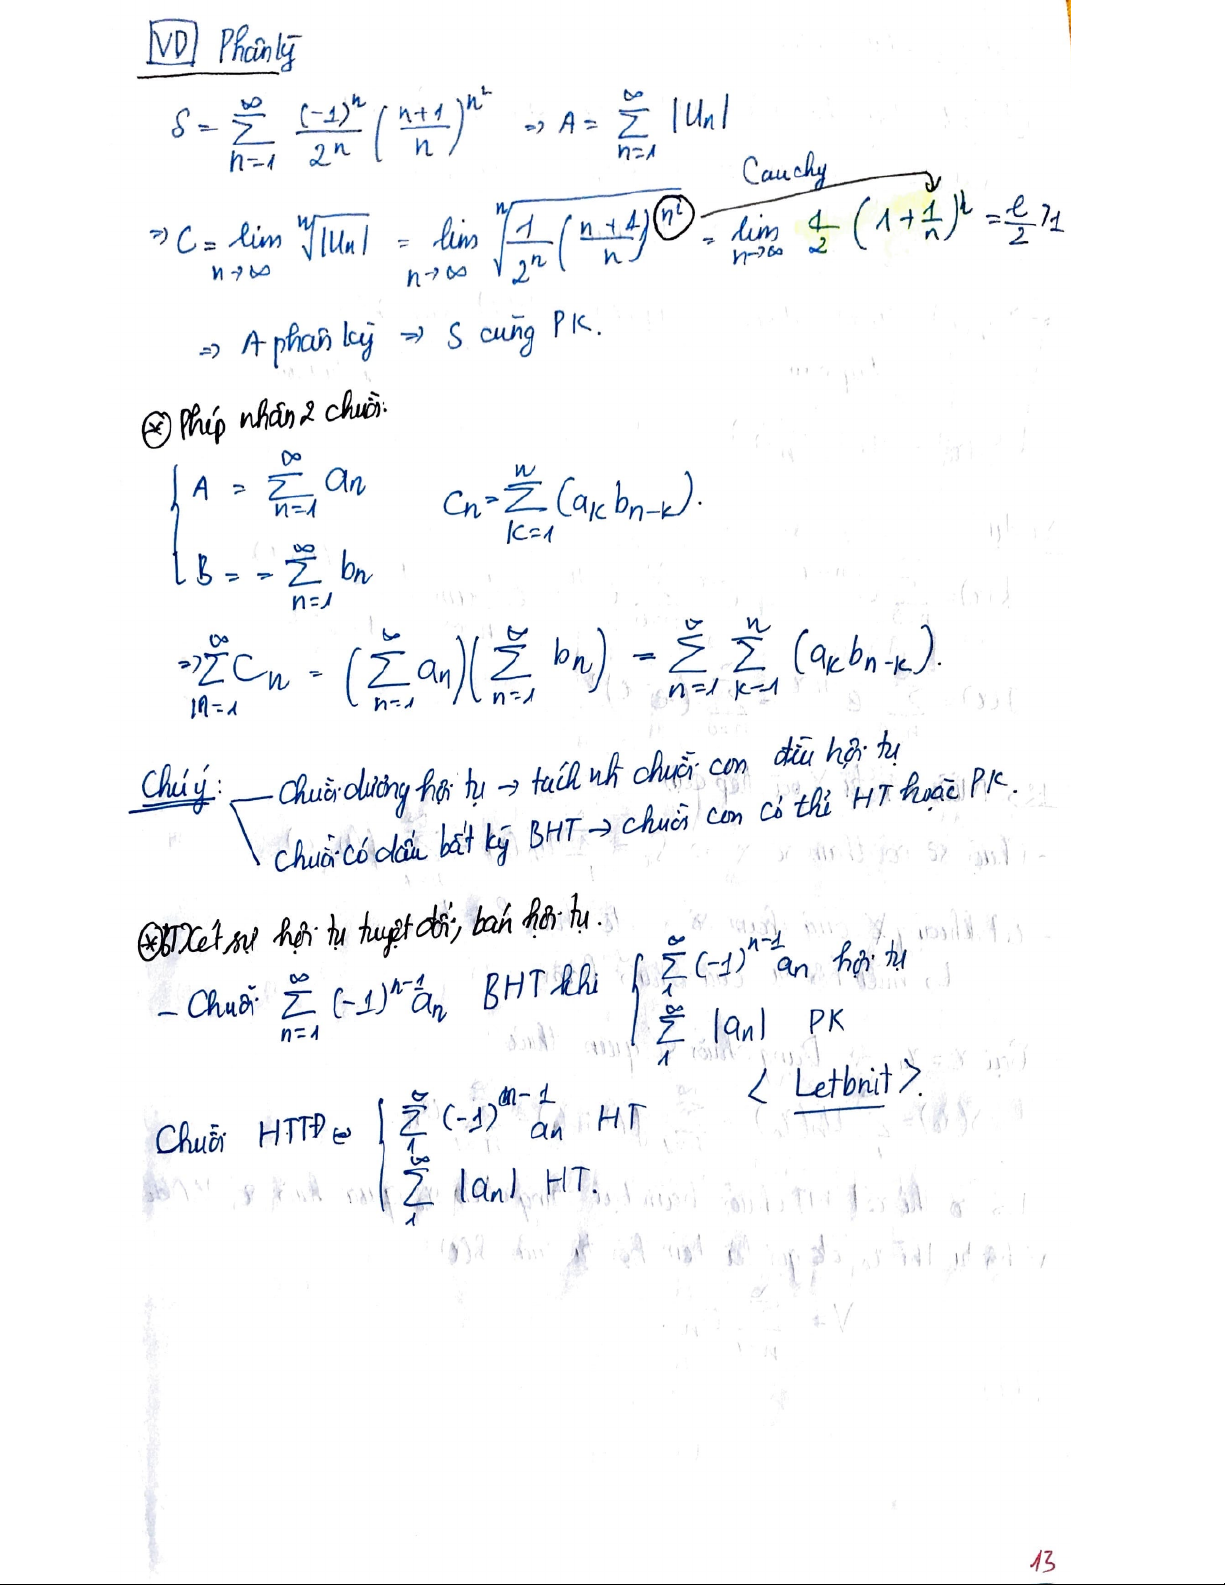 VD Phân kỳ
S = ∑_{n=1}^{∞} (-1)^n / 2^n ((n+1)/n)^{n^2} => A = ∑_{n=1}^{∞} |Un|
Cauchy
=> C = lim_{n→∞} ⁿ√|Un| = lim_{n→∞} ⁿ√(1/2^n ((n+1)/n)^{n^2}) = lim_{n→∞} 1/2 (1 + 1/n)^n = e/2 > 1
=> A phân kỳ => S cũng PK.
* Phép nhân 2 chuỗi:
A = ∑_{n=1}^{∞} an
Cn = ∑_{k=1}^{n} (ak bn-k).
B = = ∑_{n=1}^{∞} bn
=> ∑_{n=1}^{∞} Cn = (∑_{n=1}^{∞} an)(∑_{n=1}^{∞} bn) = ∑_{n=1}^{∞} ∑_{k=1}^{n} (ak bn-k).
Chú ý: - Chuỗi dương hội tụ → tách nh chuỗi con đều hội tụ
chuỗi có dấu bất kỳ BHT → chuỗi con có thể HT hoặc PK.
* BT Xét sự hội tụ tuyệt đối, bán hội tụ.
- Chuỗi ∑_{n=1}^{∞} (-1)^{n-1} an BHT khi { ∑_{1}^{∞} (-1)^{n-1} an hội tụ
∑_{1}^{∞} |an| PK
< Letbnit >.
Chuỗi HTTĐ ⇔ { ∑_{1}^{∞} (-1)^{n-1} an HT
∑_{1}^{∞} |an| HT.
13